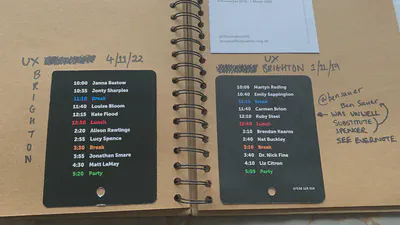 UX
4/11/22
BRIGHTON
10:00 Janna Bastow
10:35 Jonty Sharples
11:10 Break
11:40 Louise Bloom
12:15 Kate Flood
12:50 Lunch
2:20 Alison Rawlings
2:55 Lucy Spence
3:30 Break
3:55 Jonathan Smare
4:30 Matt LeMay
5:20 Party
UX
BRIGHTON 1/11/19
10:05 Martyn Reding
10:40 Emily Sappington
11:15 Break
11:40 Carmen Brion
12:10 Ruby Steel
12:40 Lunch
2:10 Brendan Kearns
2:40 Nat Buckley
3:10 Break
3:40 Dr. Nick Fine
4:10 Liz Citron
5:05 Party
@bensauer
Ben Sauer
WAS UNWELL
SUBSTITUTE
SPENCER
SEE EVERNOTE